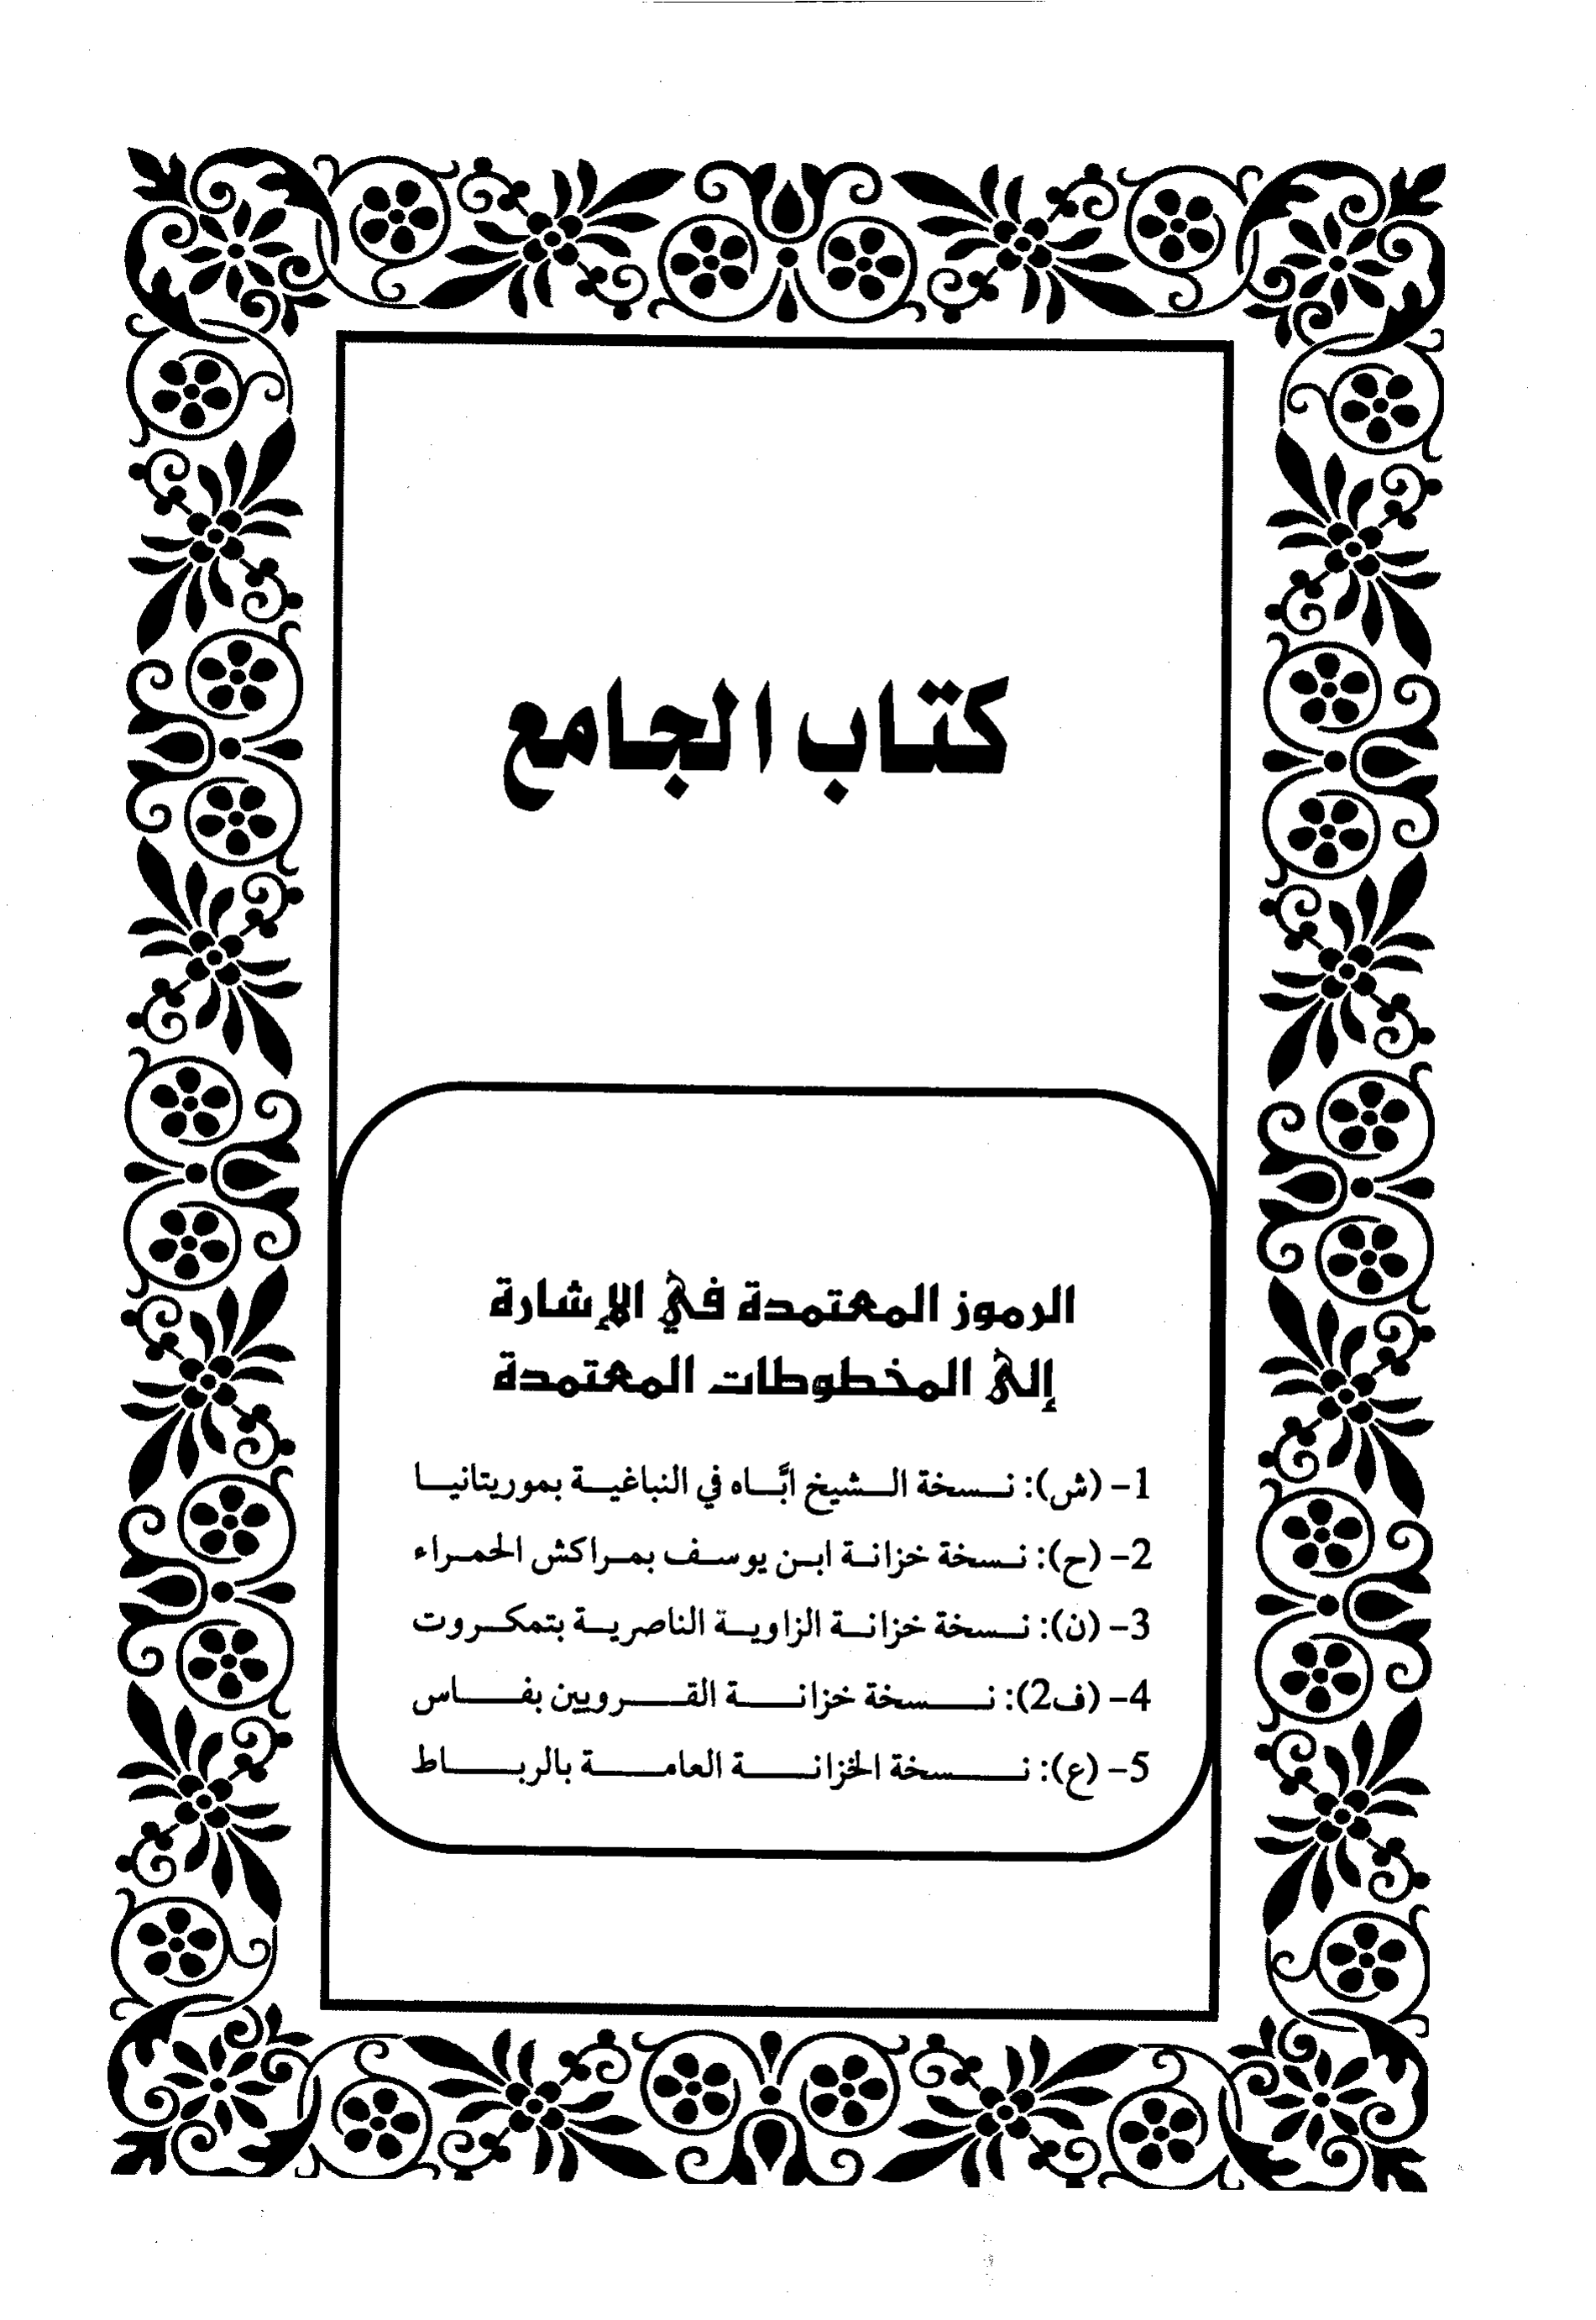 كتاب الجامع
الرموز المعتمدة في الإشارة
إلى المخطوطات المعتمدة
1- (ش): نسخة الشيخ ابَّاه في النباغية بموريتانيا
2- (ح): نسخة خزانة ابن يوسف بمراكش الحمراء
3- (ن): نسخة خزانة الزاوية الناصرية بتمكروت
4- (ف2): نسخة خزانة القرويين بفاس
5- (ع): نسخة الخزانة العامة بالرباط